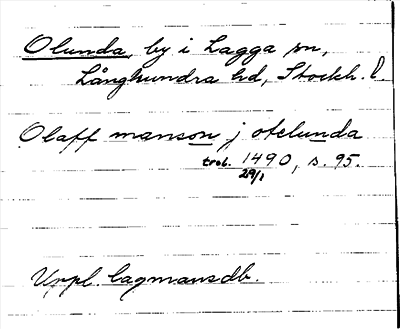 Olunda, by i Lagga sn,
Långhundra hd, Stockh. l.
Olaff manson j otelunda
trol. 1490, s. 95.
29/1
Uppl. lagmansdb.